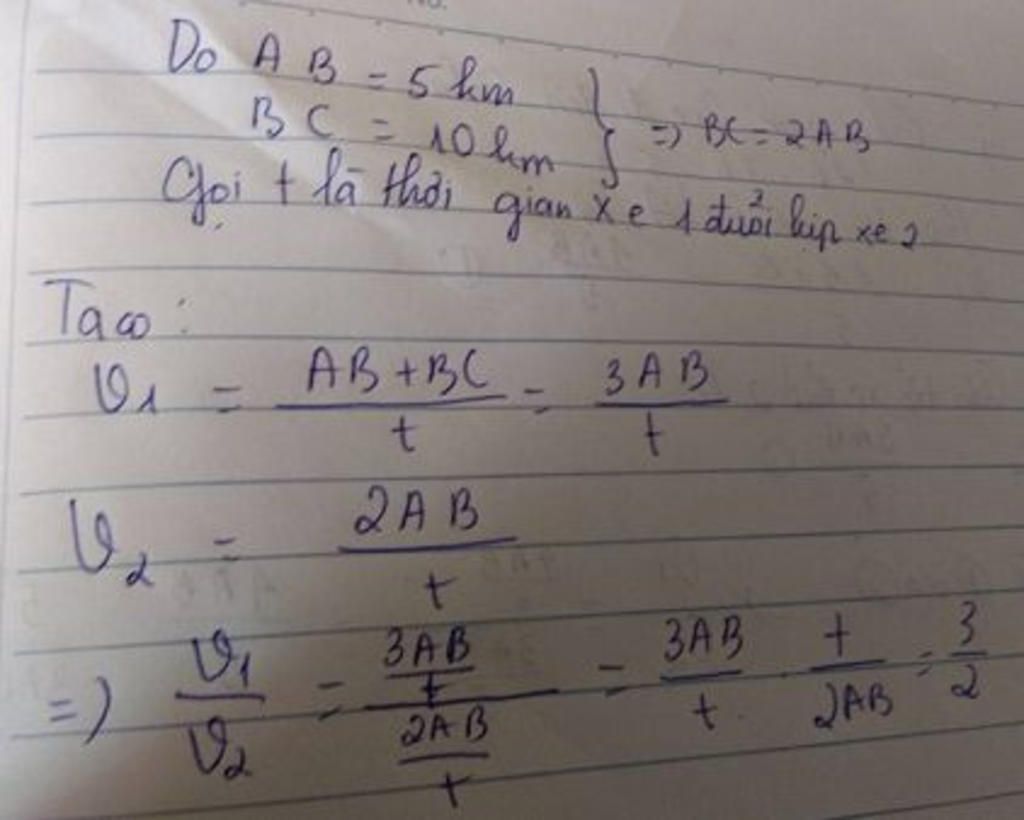 Do AB = 5 km
BC = 10 km } => BC = 2AB
Gọi t là thời gian xe 1 đuổi kịp xe 2
Ta có:
V1 = (AB + BC)/t = 3AB/t
V2 = 2AB/t
=> V1/V2 = (3AB/t)/(2AB/t) = 3AB/t . t/2AB = 3/2